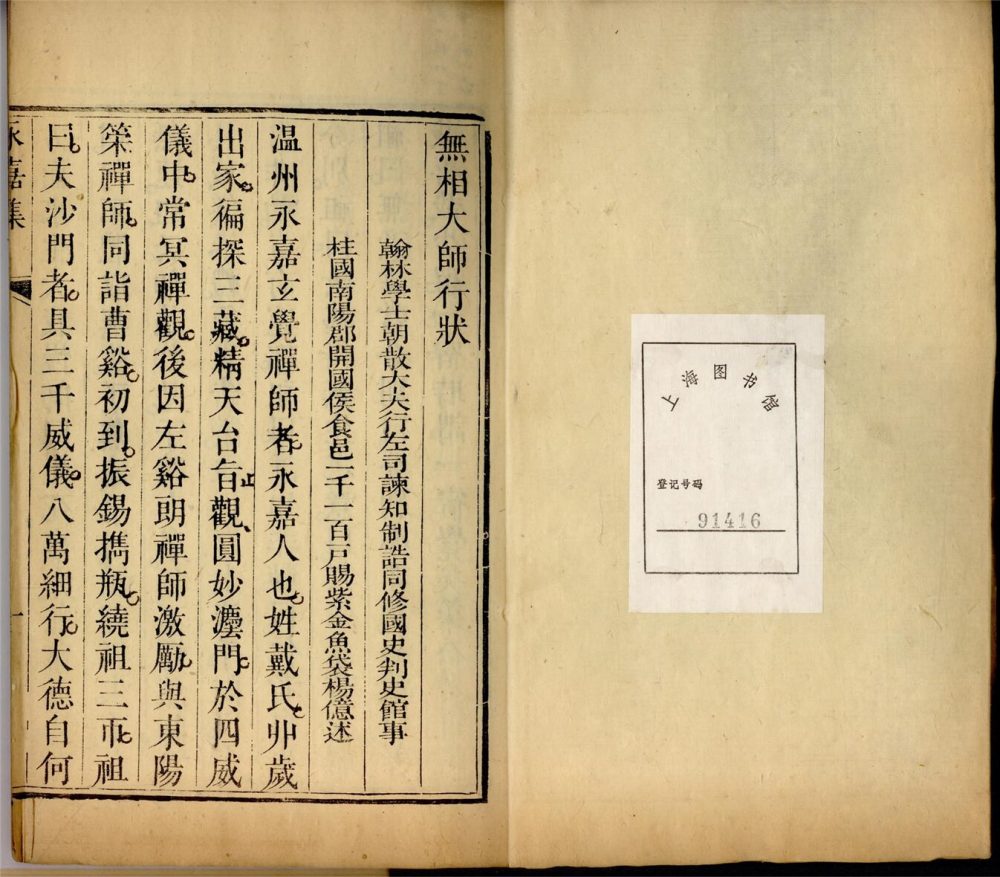 上海图书馆
登记号码
91416
無相大師行狀
翰林學士朝散大夫行左司諫知制誥同修國史判史館事
柱國南陽郡開國侯食邑一千一百戶賜紫金魚袋楊億述
温州永嘉玄覺禪師者永嘉人也姓戴氏丱歲
出家徧探三藏精天台旨觀圓妙灋門於四威
止
儀中常冥禪觀後因左谿朗禪師激厲與東陽
策禪師同詣曹谿初到振錫擕瓶繞祖三帀祖
曰夫沙門者具三千威儀八萬細行大德自何
永嘉集
一